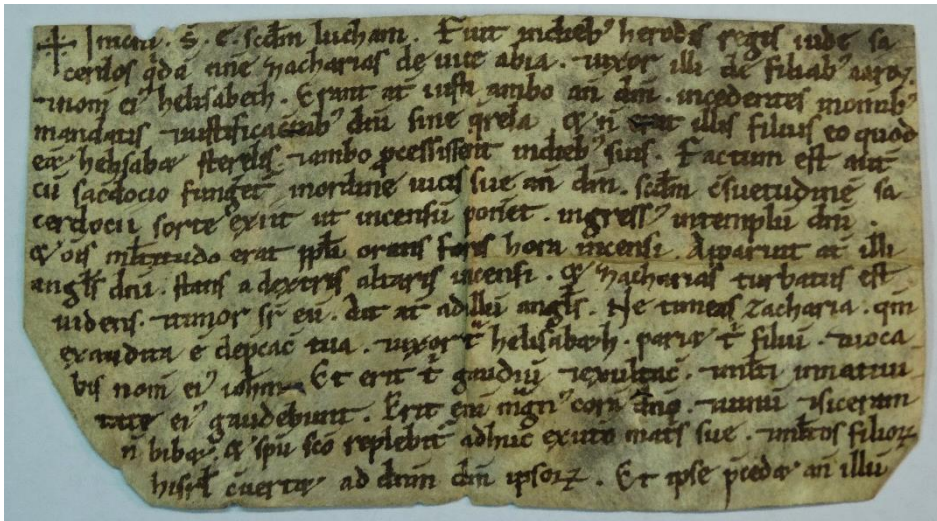 ✝ Iniciū . S̄. E. scđm lucham . Fuit indieb᷒ herodis regis iude sa
cerdos q̇dā nīne zacharias de uice abia . ⁊uxor illi de filiab᷒ aaroꝝ
⁊nom̄ ei᷒ helisabeth . Erant āt iusti ambo an̄ dm̄ . incedentes inomīb᷒
mandatis ⁊iustificac̄nib᷒ dn̄i sine q̄rela & n̄ erat illis filius eo quod
eēt helisabæ sterelis ⁊ambo p̄cessissent indieb᷒ suis . Factum est aūt
cū sac̄docio fungeret̄ inordine uicis sue an̄ dm̄ . scđm c̄suetudinē sa
cerdocii sorte exiit ut incensū pōnet . ingress᷒ intemplū dn̄i .
& oīs mltitudo erat ppl̄i orans foris hora incensi . Apparuit āt illi
angl̄s dn̄i . stans adextris altaris incensi . & zacharias turbatus est
uidens . ⁊timor sr̄ eū . Ait āt adillū angl̄s . Ne timeas zacharia . qm̄
exaudita ē dep̄cac̄ tua . ⁊uxor t̄ helisabæh . pariæ t̄ filiū . ⁊uoca
bis nom̄ ei᷒ iohm̄ Et erit t̄ gaudiū ⁊exultac̄ . ⁊ml̄ti innatiui
tate ei᷒ gaudebunt . Erit enī mgn᷒ corā dnō . ⁊uinū ⁊siceram
n̄ bibæ . & spū sc̄o replebit᷑ adhuc exutō mat̄s sue . ⁊ml̄tos filioꝝ
hisrl̄ c̄uertæ ad dnm̄ dm̄ ipsoꝝ . Et ipse p̄cedæ an̄ illū